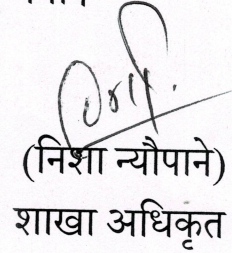 (निशा न्यौपाने)
शाखा अधिकृत